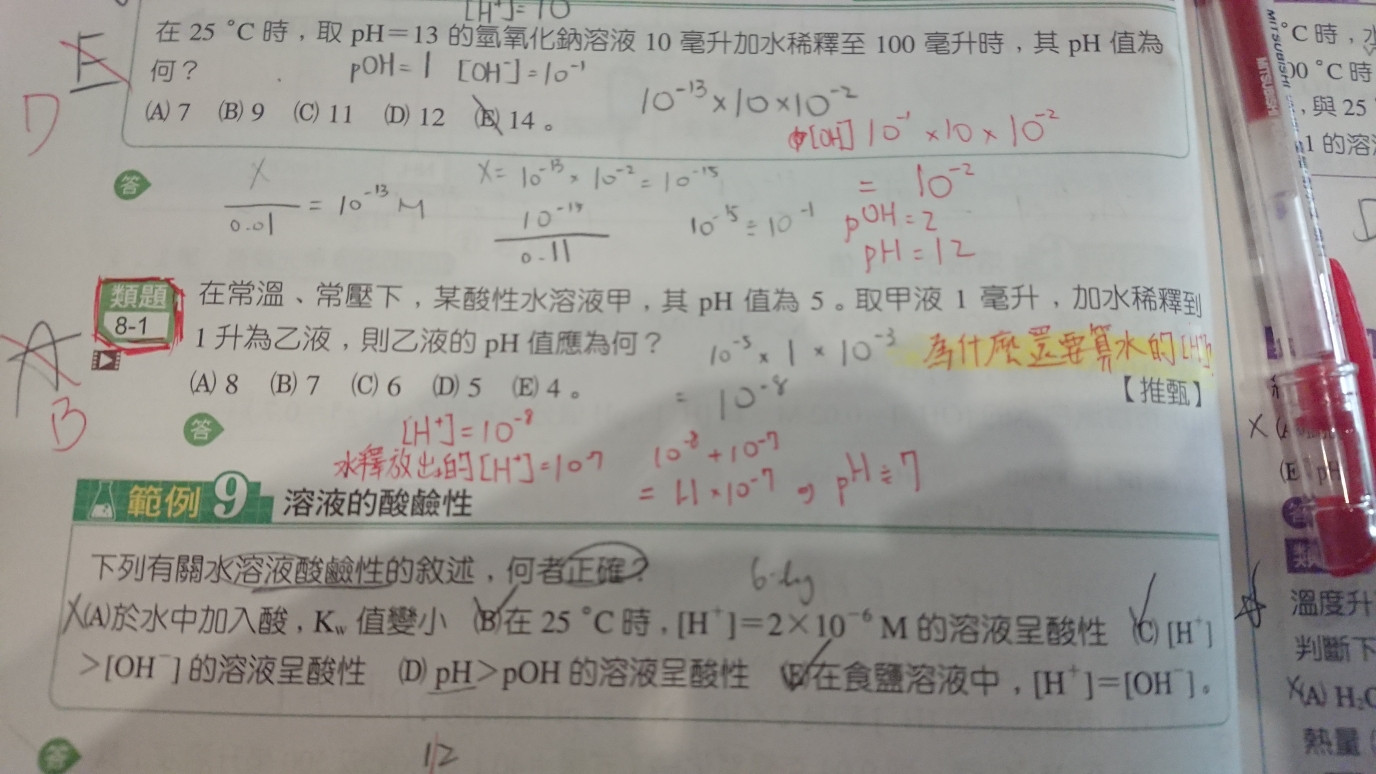 [H⁺]=10
在 25 °C 時，取 pH＝13 的氫氧化鈉溶液 10 毫升加水稀釋至 100 毫升時，其 pH 值為
何？
pOH=1 [OH⁻]=10⁻¹
10⁻¹³×10×10⁻²
(A) 7 (B) 9 (C) 11 (D) 12 (E) 14。
E
D
[OH] 10⁻¹×10×10⁻²
= 10⁻²
pOH=2
pH=12
答
X/0.01 = 10⁻¹³ M
X=10⁻¹³×10⁻²=10⁻¹⁵
0.11
10⁻¹⁵÷10⁻¹
類題
8-1
在常溫、常壓下，某酸性水溶液甲，其 pH 值為 5。取甲液 1 毫升，加水稀釋到
1 升為乙液，則乙液的 pH 值應為何？
10⁻⁵×1×10⁻³
= 10⁻⁸
為什麼還要算水的[H⁺]?
(A) 8 (B) 7 (C) 6 (D) 5 (E) 4。
【推甄】
A
B
答
[H⁺]=10⁻⁸
水釋放出的[H⁺]=10⁷
10⁻⁸+10⁻⁷
= 1.1×10⁻⁷ pH≒7
範例 9 溶液的酸鹼性
下列有關水溶液酸鹼性的敘述，何者正確？
X(A)於水中加入酸，Kw 值變小 (B)在 25 °C 時，[H⁺]＝2×10⁻⁶ M 的溶液呈酸性 (C) [H⁺]
＞[OH⁻] 的溶液呈酸性 (D) pH＞pOH 的溶液呈酸性 (E)在食鹽溶液中，[H⁺]＝[OH⁻]。
答
12
MITSUBISHI
MITSUBISHI
°C 時，
00 °C 時
，與 25
1 的溶
溫度升
判斷下
X(A) H₂O
熱量